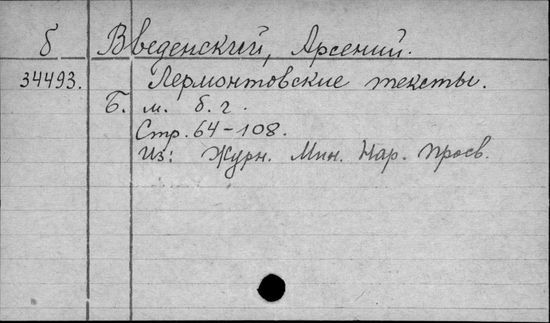 б Введенский, Арсений.
34493. Лермонтовские тексты.
Б. м. б. г.
Стр. 64-108.
Из: Журн. Мин. Нар. Просв.